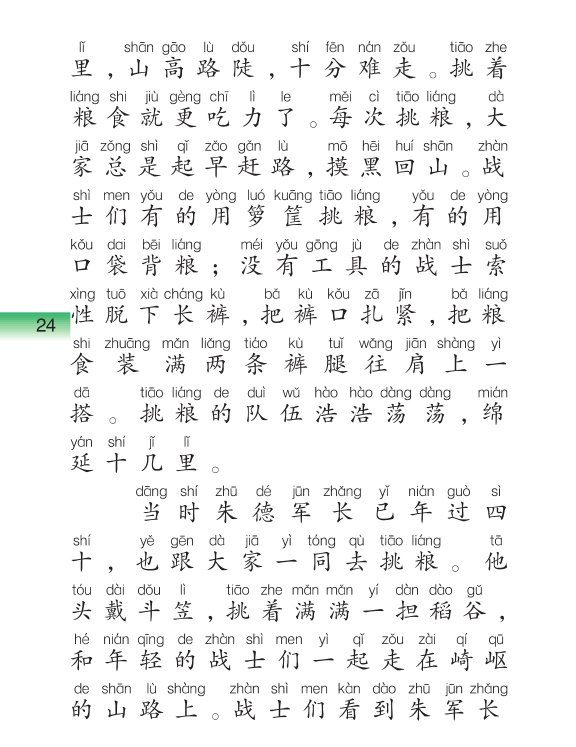 lǐ shān gāo lù dǒu shí fēn nán zǒu tiāo zhe
里，山高路陡，十分难走。挑着
liáng shi jiù gèng chī lì le měi cì tiāo liáng dà
粮食就更吃力了。每次挑粮，大
jiā zǒng shì qǐ zǎo gǎn lù mō hēi huí shān zhàn
家总是起早赶路，摸黑回山。战
shì men yǒu de yòng luó kuāng tiāo liáng yǒu de yòng
士们有的用箩筐挑粮，有的用
kǒu dai bēi liáng méi yǒu gōng jù de zhàn shì suǒ
口袋背粮；没有工具的战士索
xìng tuō xià cháng kù bǎ kù kǒu zā jǐn bǎ liáng
性脱下长裤，把裤口扎紧，把粮
24
shi zhuāng mǎn liǎng tiáo kù tuǐ wǎng jiān shàng yì
食装满两条裤腿往肩上一
dā tiāo liáng de duì wǔ hào hào dàng dàng mián
搭。挑粮的队伍浩浩荡荡，绵
yán shí jǐ lǐ
延十几里。
dāng shí zhū dé jūn zhǎng yǐ nián guò sì
当时朱德军长已年过四
shí yě gēn dà jiā yì tóng qù tiāo liáng tā
十，也跟大家一同去挑粮。他
tóu dài dǒu lì tiāo zhe mǎn mǎn yí dàn dào gǔ
头戴斗笠，挑着满满一担稻谷，
hé nián qīng de zhàn shì men yì qǐ zǒu zài qí qū
和年轻的战士们一起走在崎岖
de shān lù shàng zhàn shì men kàn dào zhū jūn zhǎng
的山路上。战士们看到朱军长